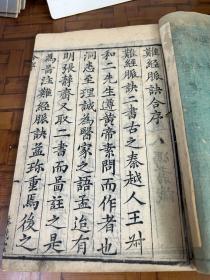 難經脈訣合序
難經脈訣二書古之秦越人王叔
和二先生遵黃帝素問而作者也
洞悉至理誠為醫家之語孟迨有
明張靜齋又取二書而圖註之是
為圖註難經脈訣益珎重焉後之